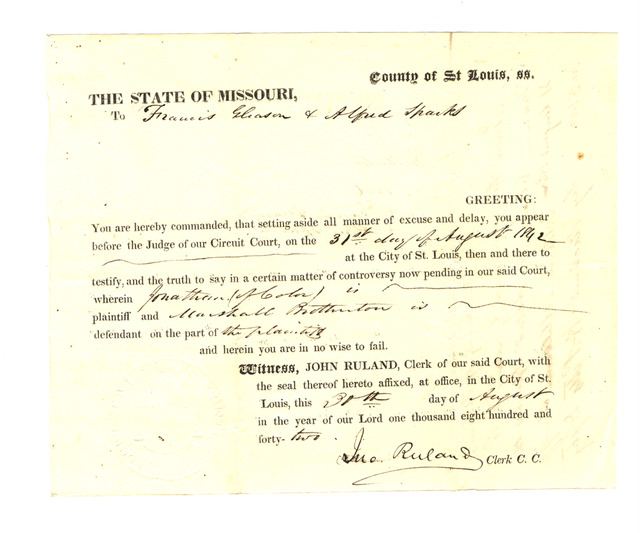 County of St Louis, ss.
THE STATE OF MISSOURI,
To Francis Gleason & Alfred Sparks
GREETING:
You are hereby commanded, that setting aside all manner of excuse and delay, you appear
before the Judge of our Circuit Court, on the 31st day of August 1842
at the City of St. Louis, then and there to
testify, and the truth to say in a certain matter of controversy now pending in our said Court,
wherein Jonathan (of Color) is
plaintiff and Marshall Brotherton is
defendant on the part of the plaintiff
and herein you are in no wise to fail.
Witness, JOHN RULAND, Clerk of our said Court, with
the seal thereof hereto affixed, at office, in the City of St.
Louis, this 30th day of August
in the year of our Lord one thousand eight hundred and
forty-two.
Jno. Ruland Clerk C. C.